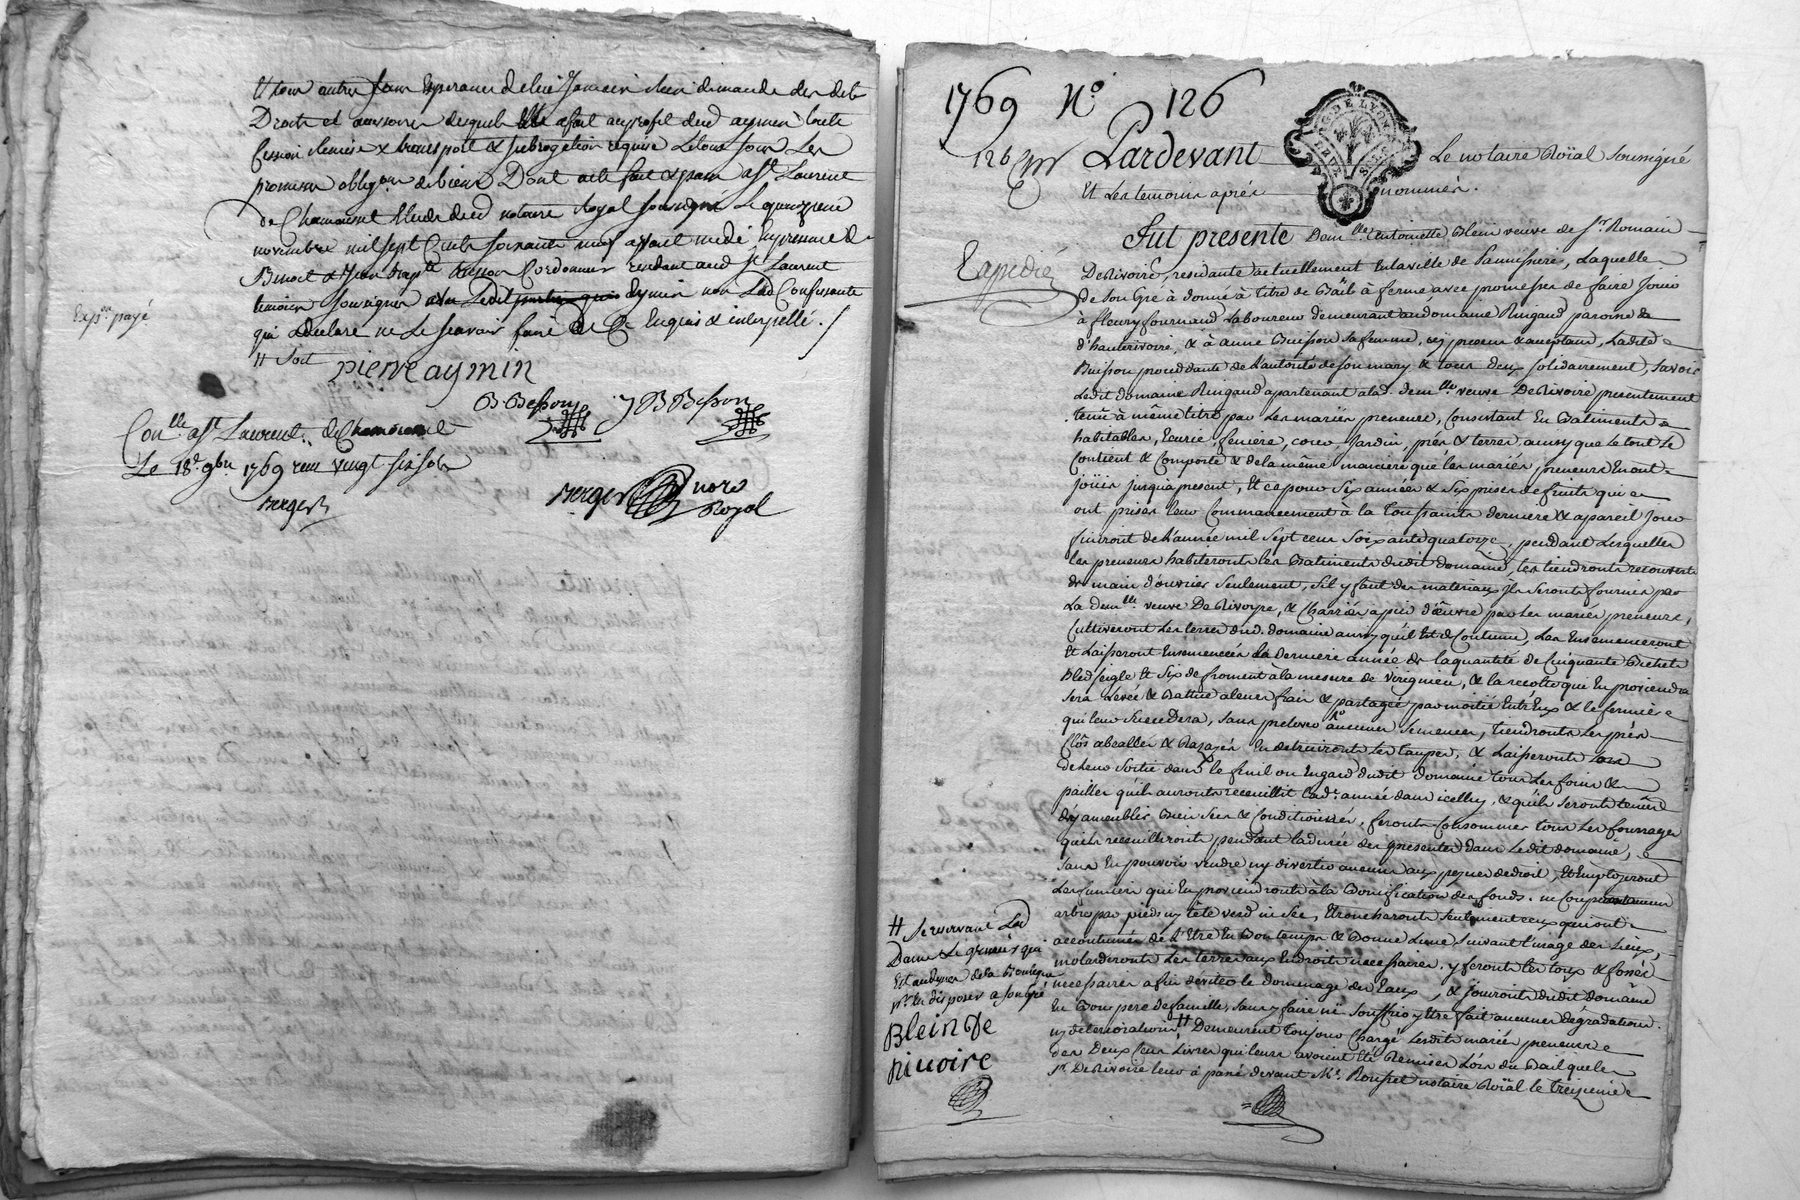 tous autres sans esperance de lui jamais rien demander des dits
Droits et auxquels elle a fait au profit dud aymin toute
Cession Remise & transport & subrogation requise
promesse obligeon des biens Dont acte fait & passé a St Laurent
de Chamousset Etude dud notaire Royal soussigné Le quinzieme
novembre mil sept Cents soixante neuf avant midi En presence de
Benoit & Jean Bapte besson Cordonnier residant aud St Laurent
temoins soussignés avec Ledit Eymin non Lad Confessante
qui a declaré ne le sçavoir faire de Ce Enquis & interpellé ./
# Soit
Expon payé
pierre aymin
B Besson J B Besson
Conlle a St Laurent de Chamousset
Le 18e 9bre 1769 reçu vingt six sols
verger
verger nore Royal
1769 No 126
126
GEN DE LYON
Pardevant Le notaire Roïal soussigné
Et Les temoins aprés nommés.
Expedié
Fut presente Demlle Antoinette Blein veuve de Sr Romain
DeRivoire, residante actuellement En la ville de Pannissiere, Laquelle
de son Gré à donné à titre de Bail à ferme avec promesse de faire Jouir
à fleury fournaud Laboureur demeurant au domaine Ringaud paroisse de
d'hauterivoire, & à anne Buisson sa femme, icy presens & acceptans, Ladite
Buisson procedante de L'autorité de son mary & tous deux solidairement, savoir
Ledit domaine Ringaud apartenant a lad. demlle veuve DeRivoire presentement
tenu à même titre par Les mariés preneurs, Consistant En Batiments
habitables, Ecurie, feniere, cour, Jardin, prés & terres, ainsy que Le tout Se
Contient & Comporte & de la même maniere que les mariés preneurs En ont
joüis jusqu'a present, Et ce pour Six années & Six prises de fruits qui
ont prises leur Commancement à la Toussaints derniere & a pareil Jour
finiront de L'année mil Sept cent Soixante quatorze, pendant Lesquelles
les preneurs habiteront les Batiments dudit domaine, les tiendront recouverts
de main d'ouvrier Seulement, s'il y faut des materiaux ils Seront fournis par
La demlle veuve DeRivoyre, & Charriés a pied d'œuvre par Les mariés preneurs,
Cultiveront Les terres dud. domaine ainsy qu'il Est de Coutume, Les Ensemenceront
Et Laisseront Ensemencées la derniere année de la quantité de Cinquante Bichets
Bled seigle Et Six de froment à la mesure de , & la recolte qui En proviendra
Sera Levée & Battue a leurs frais & partagée par moitié Entr'Eux & le fermier
qui leur Succedera, sans prelever aucunes Semences, tiendront Les prés
Clôs & Razagés En detruiront Les taupes, & Laisseront Lors
de leur Sortie dans le fenil ou Engard dudit domaine tous Les foins &
pailles qu'ils auront recueillis Lade année dans icelluy, & qu'ils seront tenus
d'y ameubler Bien Secs & Conditionnés, feront Consommer tous Les fourrages
qu'ils recueilleront pendant la durée des presentes dans Ledit domaine,
sans En pouvoir vendre ny divertir aucuns aux peynes de droit, Et Employeront
Les fumiers qui En proviendront à la Bonification des fonds. ne Couperont aucun
arbre par pied ny tête verd ni Sec, Etroncheront Seulement ceux qui ont
accoutumés de L'Etre En Bon temps & Bonne Lune, suivant l'usage des Lieux,
Les terres aux Endroits necessaires. y feront les & fossés
necessaires afin d'eviter le dommage des Eaux, & joüiront dudit domaine
En Bon pere de famille, sans y faire ni Souffrir y Etre fait aucunes dégradations
ny deteriorations # Demeurent toujours Chargé Lesdits mariés preneurs
des Deux Cent Livres qui leurs avoient Eté Remises Lors du Bail que le
Sr DeRivoire leur à passé devant Me Roussel notaire Roïal le treizieme
# Se reservant Lad
Dame Le qui
Est au de la
pr En disposer a son gré
Blein De
Rivoire